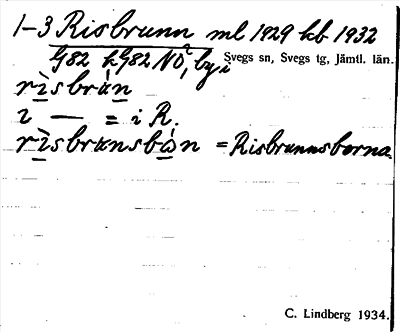 1-3 Risbrunn ml 1929 kb 1932
G82 kG82 NO², by i
Svegs sn, Svegs tg, Jämtl. län.
rìsbràn
i — = i R.
rìsbrunsbàn = Risbrunnsborna
C. Lindberg 1934.